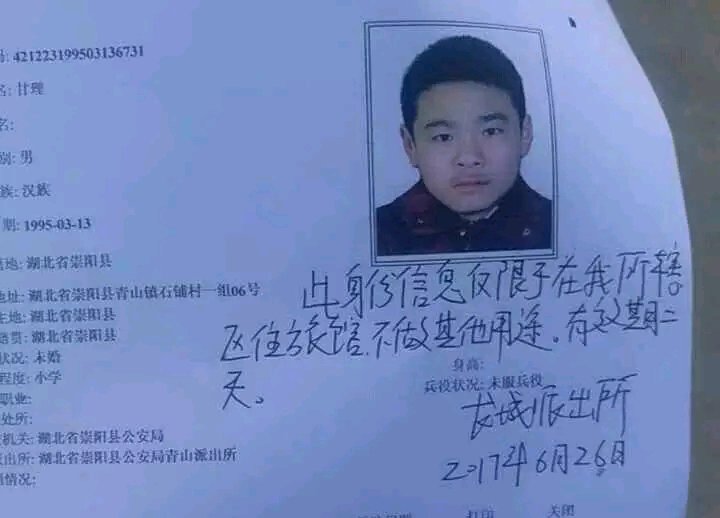 号: 421223199503136731
名: 甘理
名:
别: 男
族: 汉族
期: 1995-03-13
地: 湖北省崇阳县
地址: 湖北省崇阳县青山镇石铺村一组06号
生地: 湖北省崇阳县
籍贯: 湖北省崇阳县
状况: 未婚
程度: 小学
职业:
处所:
机关: 湖北省崇阳县公安局
派出所: 湖北省崇阳县公安局青山派出所
情况:
此身份信息仅限于在我所辖
区住旅馆.不做其他用途。有效期二
天。
身高:
兵役状况: 未服兵役
长城派出所
2017年6月26日
打印
关闭